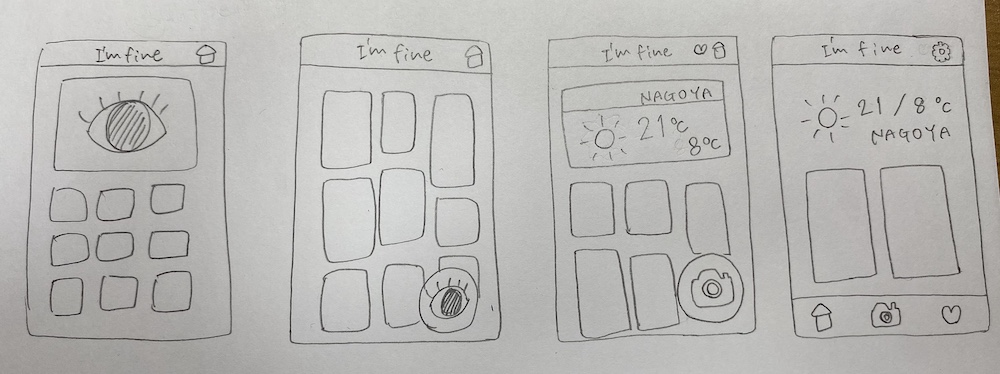 I'm fine
I'm fine
I'm fine
NAGOYA
21℃
8℃
I'm fine
21/8℃
NAGOYA